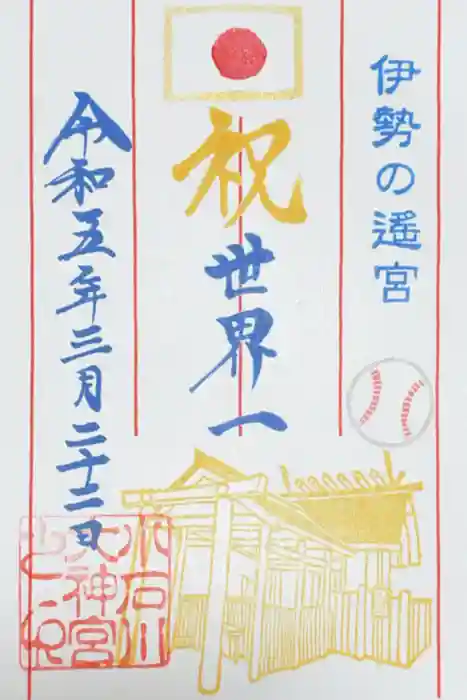 伊勢の遥宮
祝
世界一
令和五年三月二十二日
小石川
大神宮